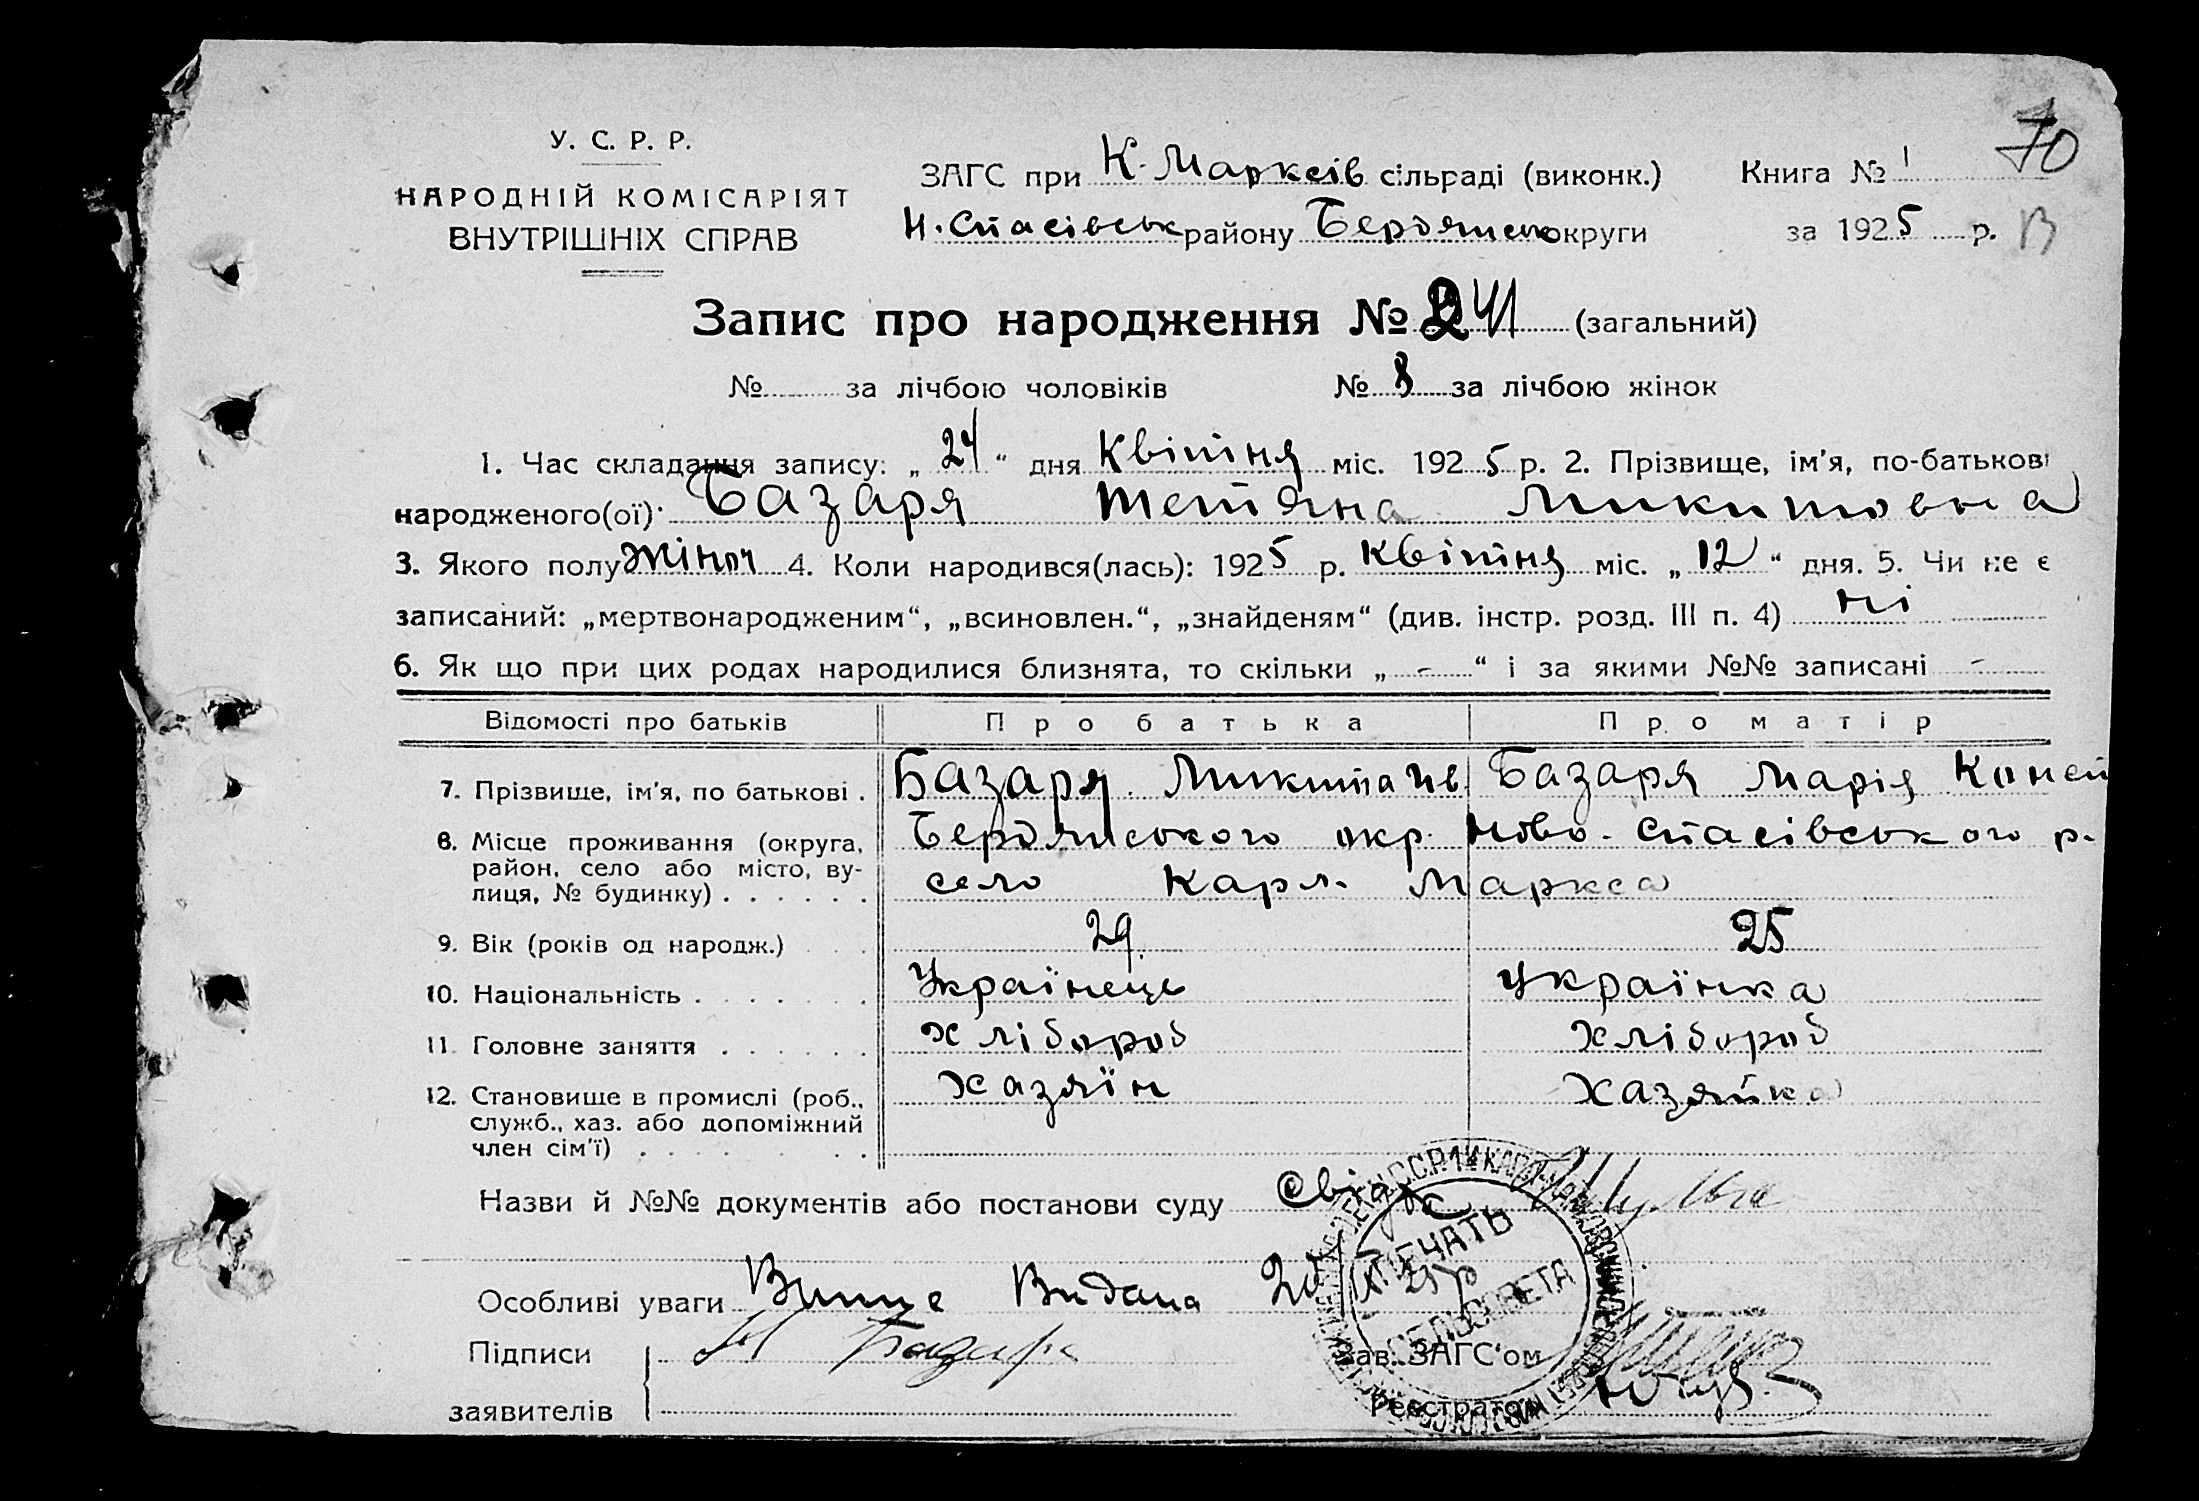 70
У. С. Р. Р.
НАРОДНІЙ КОМІСАРІЯТ
ВНУТРІШНІХ СПРАВ
ЗАГС при К. Марксів сільраді (виконк.) Книга № 1
Н. Спасівськ району Бердянськ округи за 1925 р. В
Запис про народження № 241 (загальний)
№ за лічбою чоловіків № 8 за лічбою жінок
1. Час складання запису: „ 24 “ дня Квітня міс. 1925 р. 2. Прізвище, ім'я, по-батькові
народженого(ої) Базаря Тетяна Микитовна
3. Якого полу жіноч 4. Коли народився(лась): 1925 р. Квітня міс. „ 12 “ дня. 5. Чи не є
записаний: „мертвонародженим“, „всиновлен.“, „знайденям“ (див. інстр. розд. III п. 4) ні
6. Як що при цих родах народилися близнята, то скільки „ - “ і за якими №№ записані -
Відомості про батьків Про батька Про матір
7. Прізвище, ім'я, по батькові . Базаря Микита Ив Базаря Марія
8. Місце проживання (округа, район, село або місто, ву-
лиця, № будинку) . . . . . . Бердянського окр. Ново-Спасівського р.
село Карл. Маркса
9. Вік (років од народж.) 29. 25
10. Національність . . . . . . . Українець Українка
11. Головне заняття . . . . . . Хлібороб Хлібороб
12. Становище в промислі (роб., Хазяїн Хазяйка
служб., хаз. або допоміжний
член сім'ї) . . . . . . . .
Назви й №№ документів або постанови суду
ПЕЧАТЬ
СЕЛЬСОВЕТА
Особливі уваги Видана
Підписи М Базаря Зав. ЗАГС'ом
заявителів Реєстратор